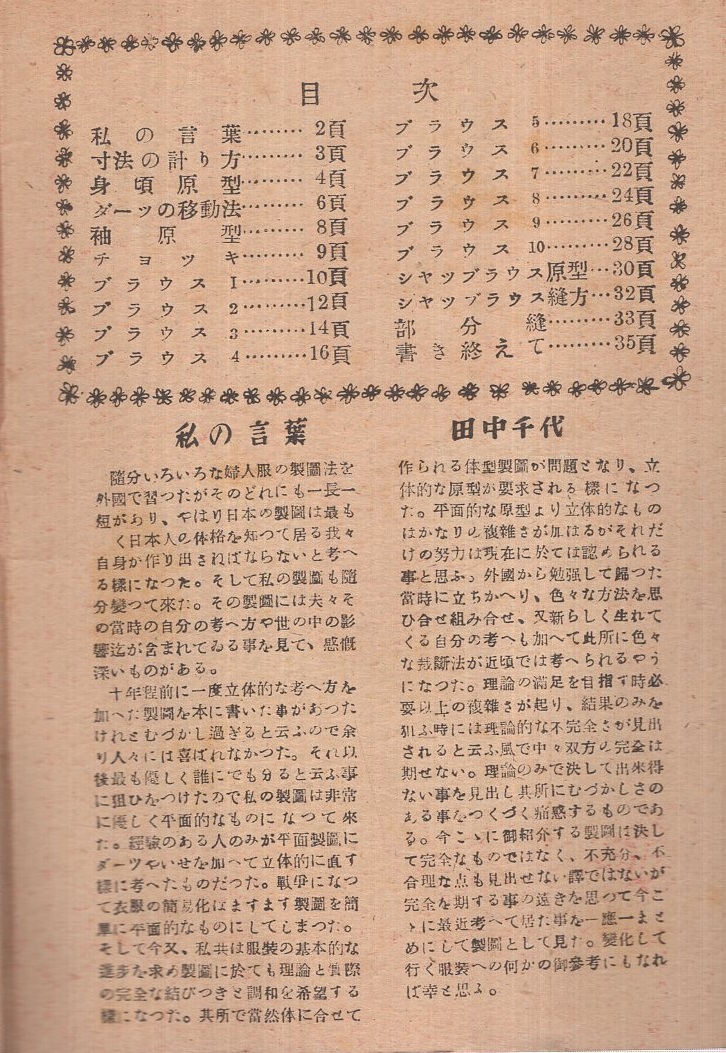 目次
私の言葉………2頁
寸法の計り方………3頁
身頃原型………4頁
ダーツの移動法………6頁
袖原型………8頁
チョッキ………9頁
ブラウス1………10頁
ブラウス2………12頁
ブラウス3………14頁
ブラウス4………16頁
ブラウス5………18頁
ブラウス6………20頁
ブラウス7………22頁
ブラウス8………24頁
ブラウス9………26頁
ブラウス10………28頁
シャツブラウス原型…30頁
シャツブラウス縫方…32頁
部分縫………33頁
書き終えて………35頁
私の言葉 田中千代
隨分いろいろな婦人服の製圖法を
外國で習つたがそのどれにも一長一
短があり、やはり日本の製圖は最も
く日本人の体格を知つて居る我々
自身が作り出さねばならないと考へ
る樣になつた。そして私の製圖も隨
分變つて來た。その製圖には夫々そ
の當時の自分の考へ方や世の中の影
響迄が含まれてゐる事を見て、感慨
深いものがある。
十年程前に一度立体的な考へ方を
加へた製圖を本に書いた事があつた
けれどむづかし過ぎると云ふので余
り人々には喜ばれなかつた。それ以
後最も優しく誰にでも分ると云ふ事
に狙ひをつけたので私の製圖は非常
に優しく平面的なものになつて來
た。經驗のある人のみが平面製圖に
ダーツやいせを加へて立体的に直す
樣に考へたものだつた。戰爭になつ
て衣服の簡易化はますます製圖を簡
單に平面的なものにしてしまつた。
そして今又、私共は服裝の基本的な
進步を求め製圖に於ても理論と實際
の完全な結びつきと調和を希望する
樣になつた。其所で當然体に合せて
作られる体型製圖が問題となり、立
体的な原型が要求される樣になつ
た。平面的な原型より立体的なもの
はかなりの複雜さが加はるがそれだ
けの努力は現在に於ては認められる
事と思ふ。外國から勉强して歸つた
當時に立ちかへり、色々な方法を思
ひ合せ組み合せ、又新らしく生れて
くる自分の考へも加へて此所に色々
な裁斷法が近頃では考へられるやう
になつた。理論の滿足を目指す時必
要以上の複雜さが起り、結果のみを
狙ふ時には理論的な不完全さが見出
されると云ふ風で中々双方の完全は
期せない。理論のみで決して出來得
ない事を見出し其所にむづかしさの
ある事をつくづく痛感するものであ
る。今こゝに御紹介する製圖は決し
て完全なものではなく、不充分、不
合理な点も見出せない譯ではないが
完全を期する事の遠きを思つて今こ
ゝに最近考へて居た事を一應一まと
めにして製圖として見た。變化して
行く服裝への何かの御參考にもなれ
ば幸と思ふ。